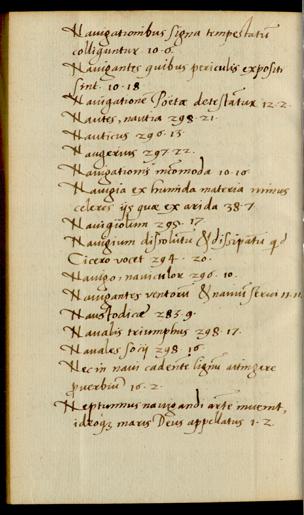 Nauigationibus signa tempestatũ
colliguntur 10·6·
Nauigantes quibus periculis expositi
sint· 10·18
Nauigationẽ Poëtæ detestãtur 12·2·
Nautes, nautia 298·21·
Nauticus 296·13·
Naugerius 297·22·
Nauigationis incõmoda 10·16·
Nauigia ex humida materia minus
celeres ijs quæ ex arida 38·7·
Nauigiolum 295·17
Nauigium dissolutũ & dissipatũ qd
Cicero vocet 294·20·
Nauigo, nauiculor 296·10·
Nauigantes ventorũ & nauiũ serui 11·11
Naustodicæ 283·9·
Naualis triumphus 298·17·
Nauales socij 298·16·
Nec in naui cadente lignũ attingere
prouerbiũ 16·2·
Neptunnus nauigandi artẽ inuenit,
ideoq; maris Deus appellatus 1·2·